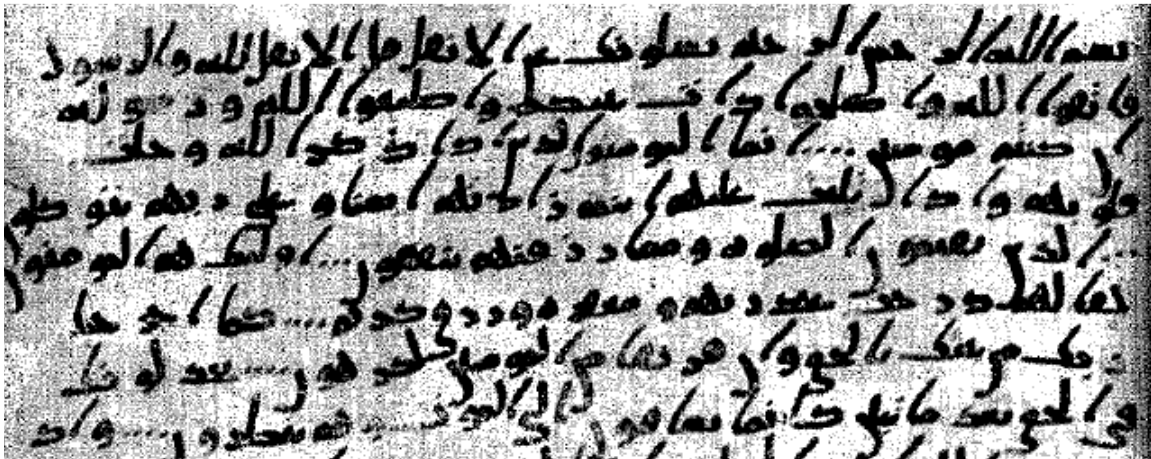 بسم الله الرحمن الرحيم يسلونك عن الانفل قل الانفل لله والرسول
فاتقوا الله واصلحوا ذات بينكم واطيعوا الله ورسوله
ان كنتم مومنين انما المومنون الذين اذا ذكر الله وجلت
قلوبهم واذا تليت عليهم ايته زادتهم ايمنا وعلى ربهم يتوكلو
ن الذين يقيمون الصلوه ومما رزقنهم ينفقون اوليك هم المومنون
حقا لهم درجت عند ربهم ومغفره ورزق كريم كما اخرجك
ربك من بيتك بالحق وان فريقا من المومنين لكرهون يجدلونك
في الحق بعد ما تبين كانما يساقون الى الموت وهم ينظرون واذ